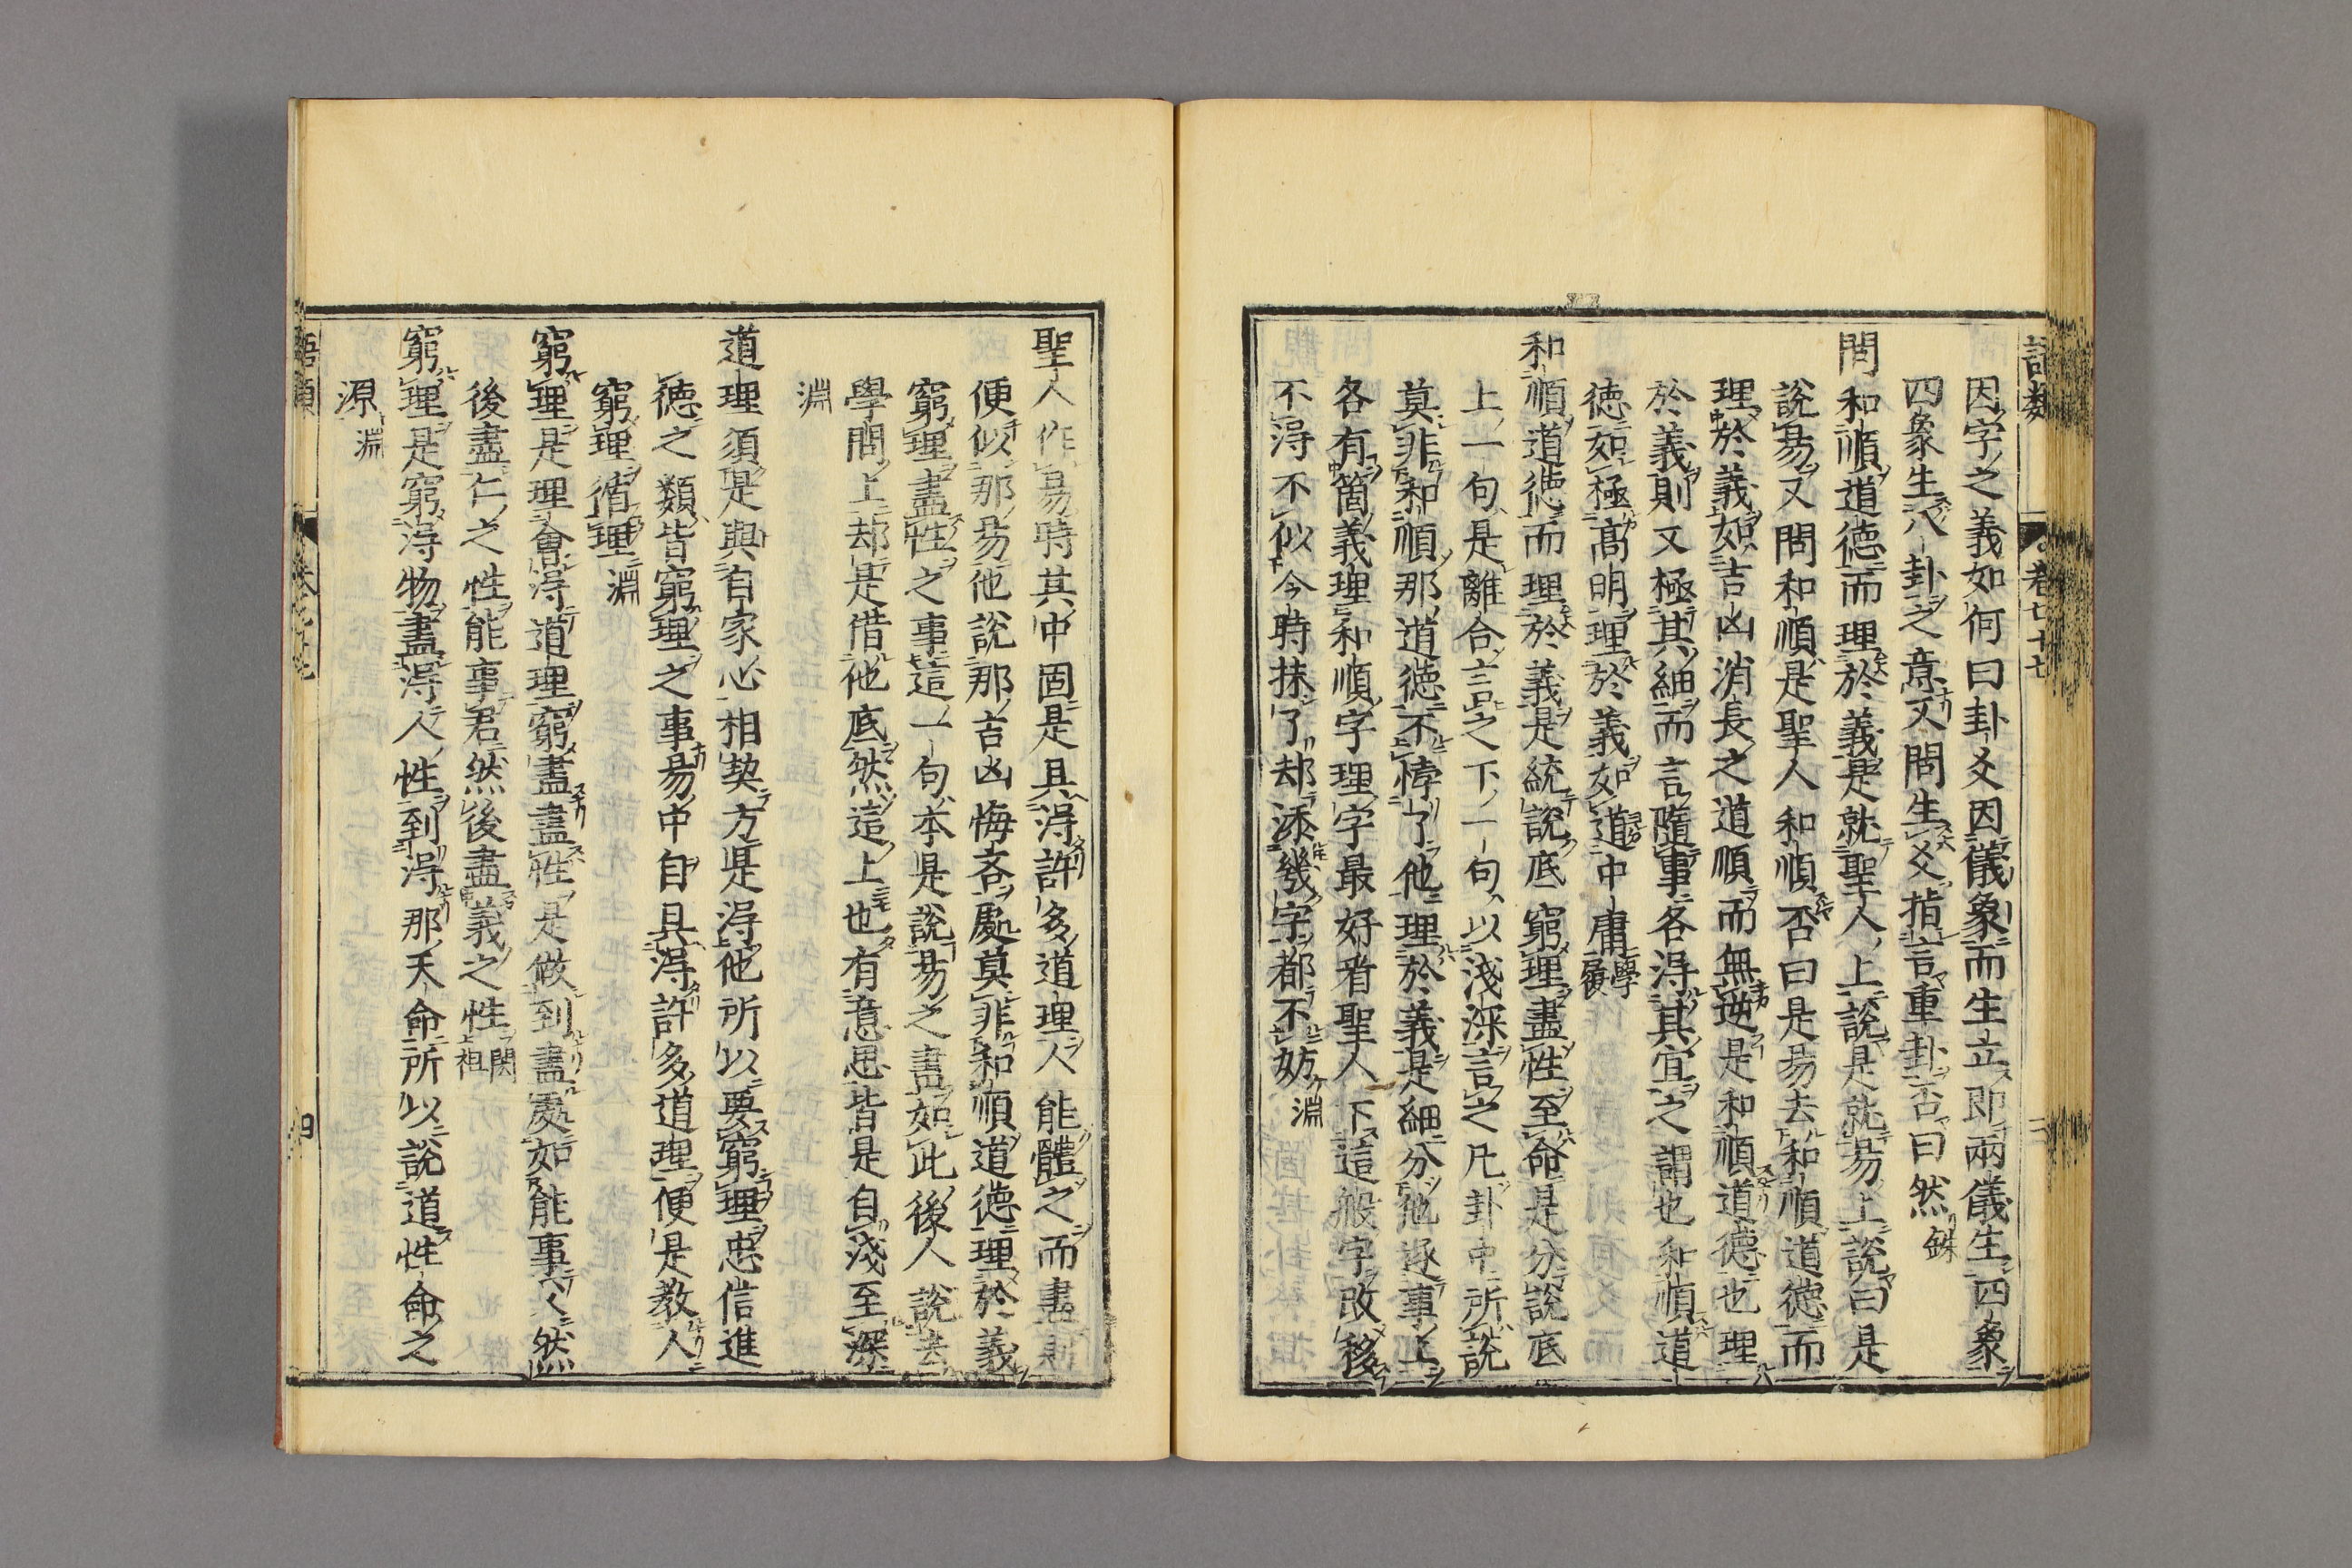 語類
卷七十七
三
因字之義如何曰卦爻因儀象而生立即兩儀生四象
四象生八卦之意又問生爻指言重卦否曰然銖
問和順道德而理於義是就聖人上說是就易上說曰是
說易又問和順是聖人和順否曰是易去和順道德而
理於義如吉凶消長之道順而無逆是和順道德也理
於義則又極其細而言隨事各得其宜之謂也和順道
德如極高明理於義如道中庸學履
和順道德而理於義是統說底窮理盡性至命是分說底
上一句是離合言之下一句以淺深言之凡卦中所說
莫非和順那道德不悖了他理於義是細分他逐事上
各有箇義理和順字理字最好看聖人下這般字改移
不得不似今時抹了却添幾字都不妨淵
聖人作易時其中固是具得許多道理人能體之而盡則
便似那易他說那吉凶悔吝處莫非和順道德理於義
窮理盡性之事這一句本是說易之書如此後人說去
學問上却是借他底然這上也有意思皆是自淺至深
淵
道理須是與自家心相契方是得他所以要窮理忠信進
德之類皆窮理之事易中自具得許多道理便是教人
窮理循理淵
窮理是理會得道理窮盡盡性是做到盡處如能事父然
後盡仁之性能事君然後盡義之性閎祖
窮理是窮得物盡得人性到得那天命所以說道性命之
源淵
語類
四